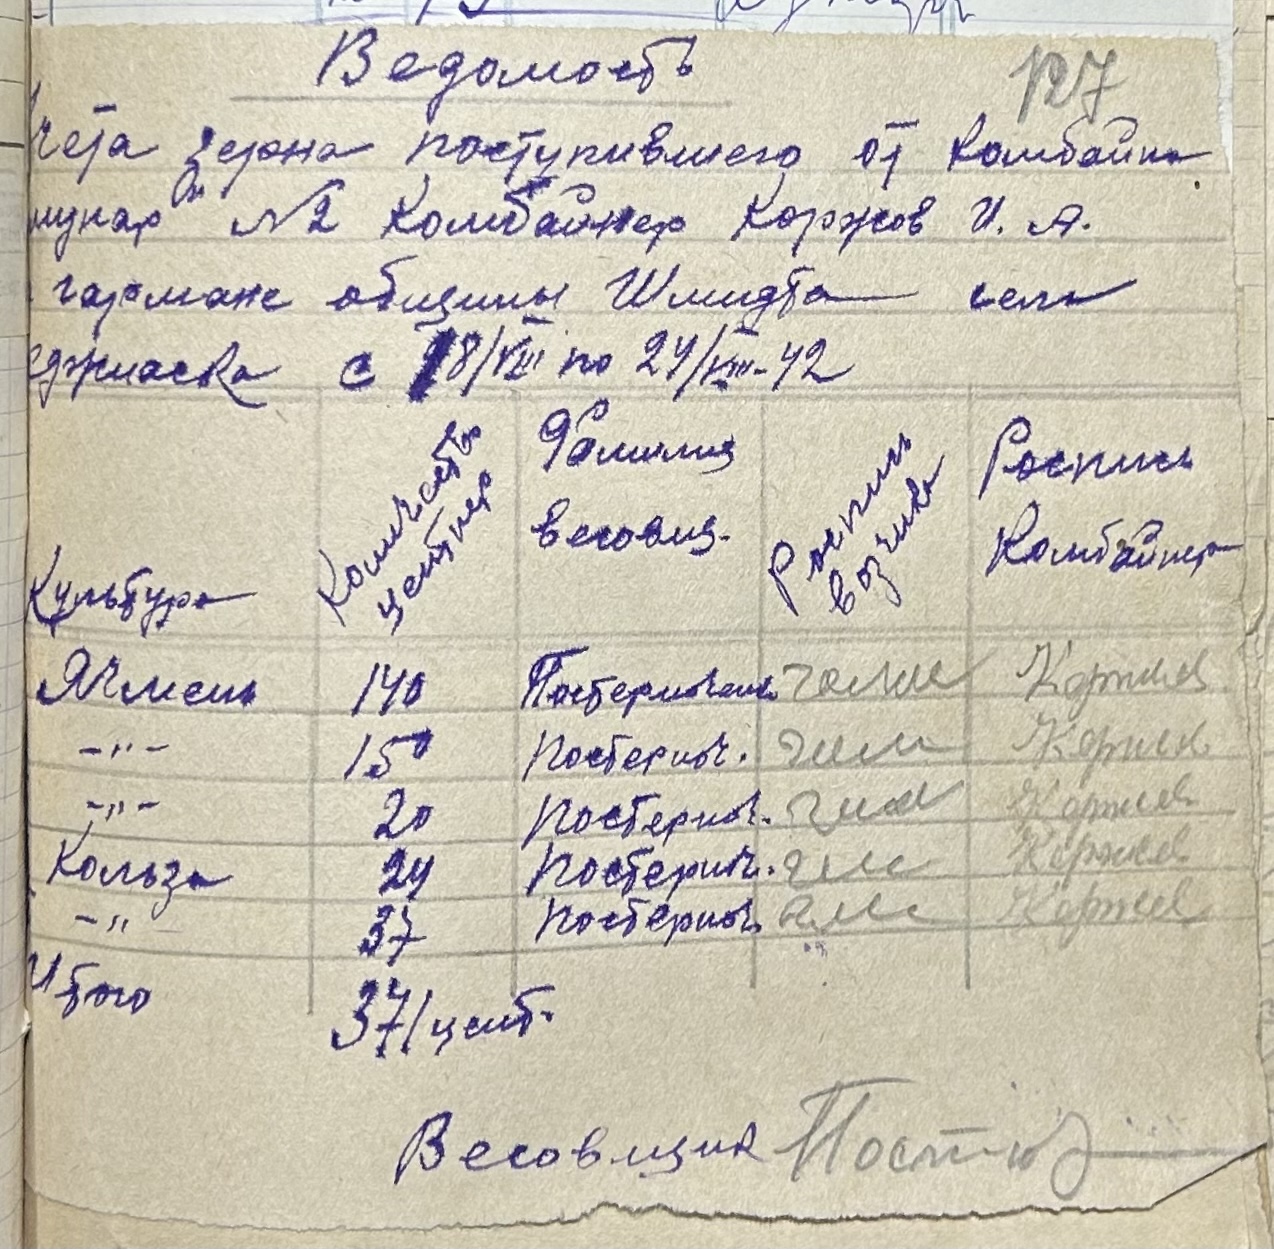 Ведомость
127
чета зерна поступившего от комбайна
мунар" №2 комбайнер Коржов И. А.
гармане общины Шмидта села
с 18/VIII по 24/VIII-42
Культура
Количество центнер
Фамилия весовщ.
Роспись возчика
Роспись Комбайнера
Ячмень 140 Постернич Коржов
-"- 150 Постернич. Коржов
-"- 20 Постернич. Коржов
Кольза 24 Постернич. Коржов
-"- 37 Постернич. Коржов
Итого 371 цент.
Весовщик